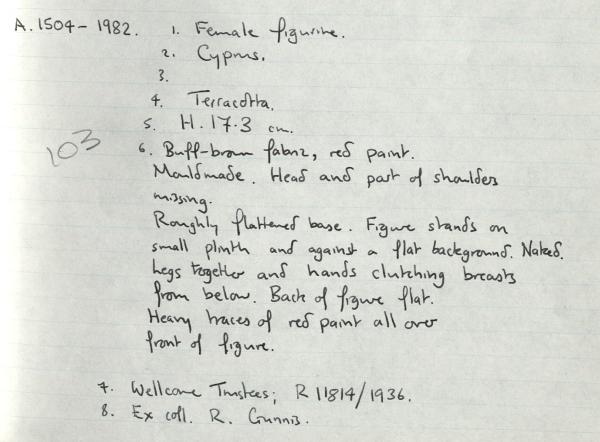 A.1504-1982. 1. Female figurine.
2. Cyprus.
3.
4. Terracotta.
5. H. 17.3 cm.
103
6. Buff-brown fabric, red paint.
Mouldmade. Head and part of shoulders
missing.
Roughly flattened base. Figure stands on
small plinth and against a flat background. Naked.
Legs together and hands clutching breasts
from below. Back of figure flat.
Heavy traces of red paint all over
front of figure.
7. Wellcome Trustees; R 11814/1936.
8. Ex coll. R. Gunnis.